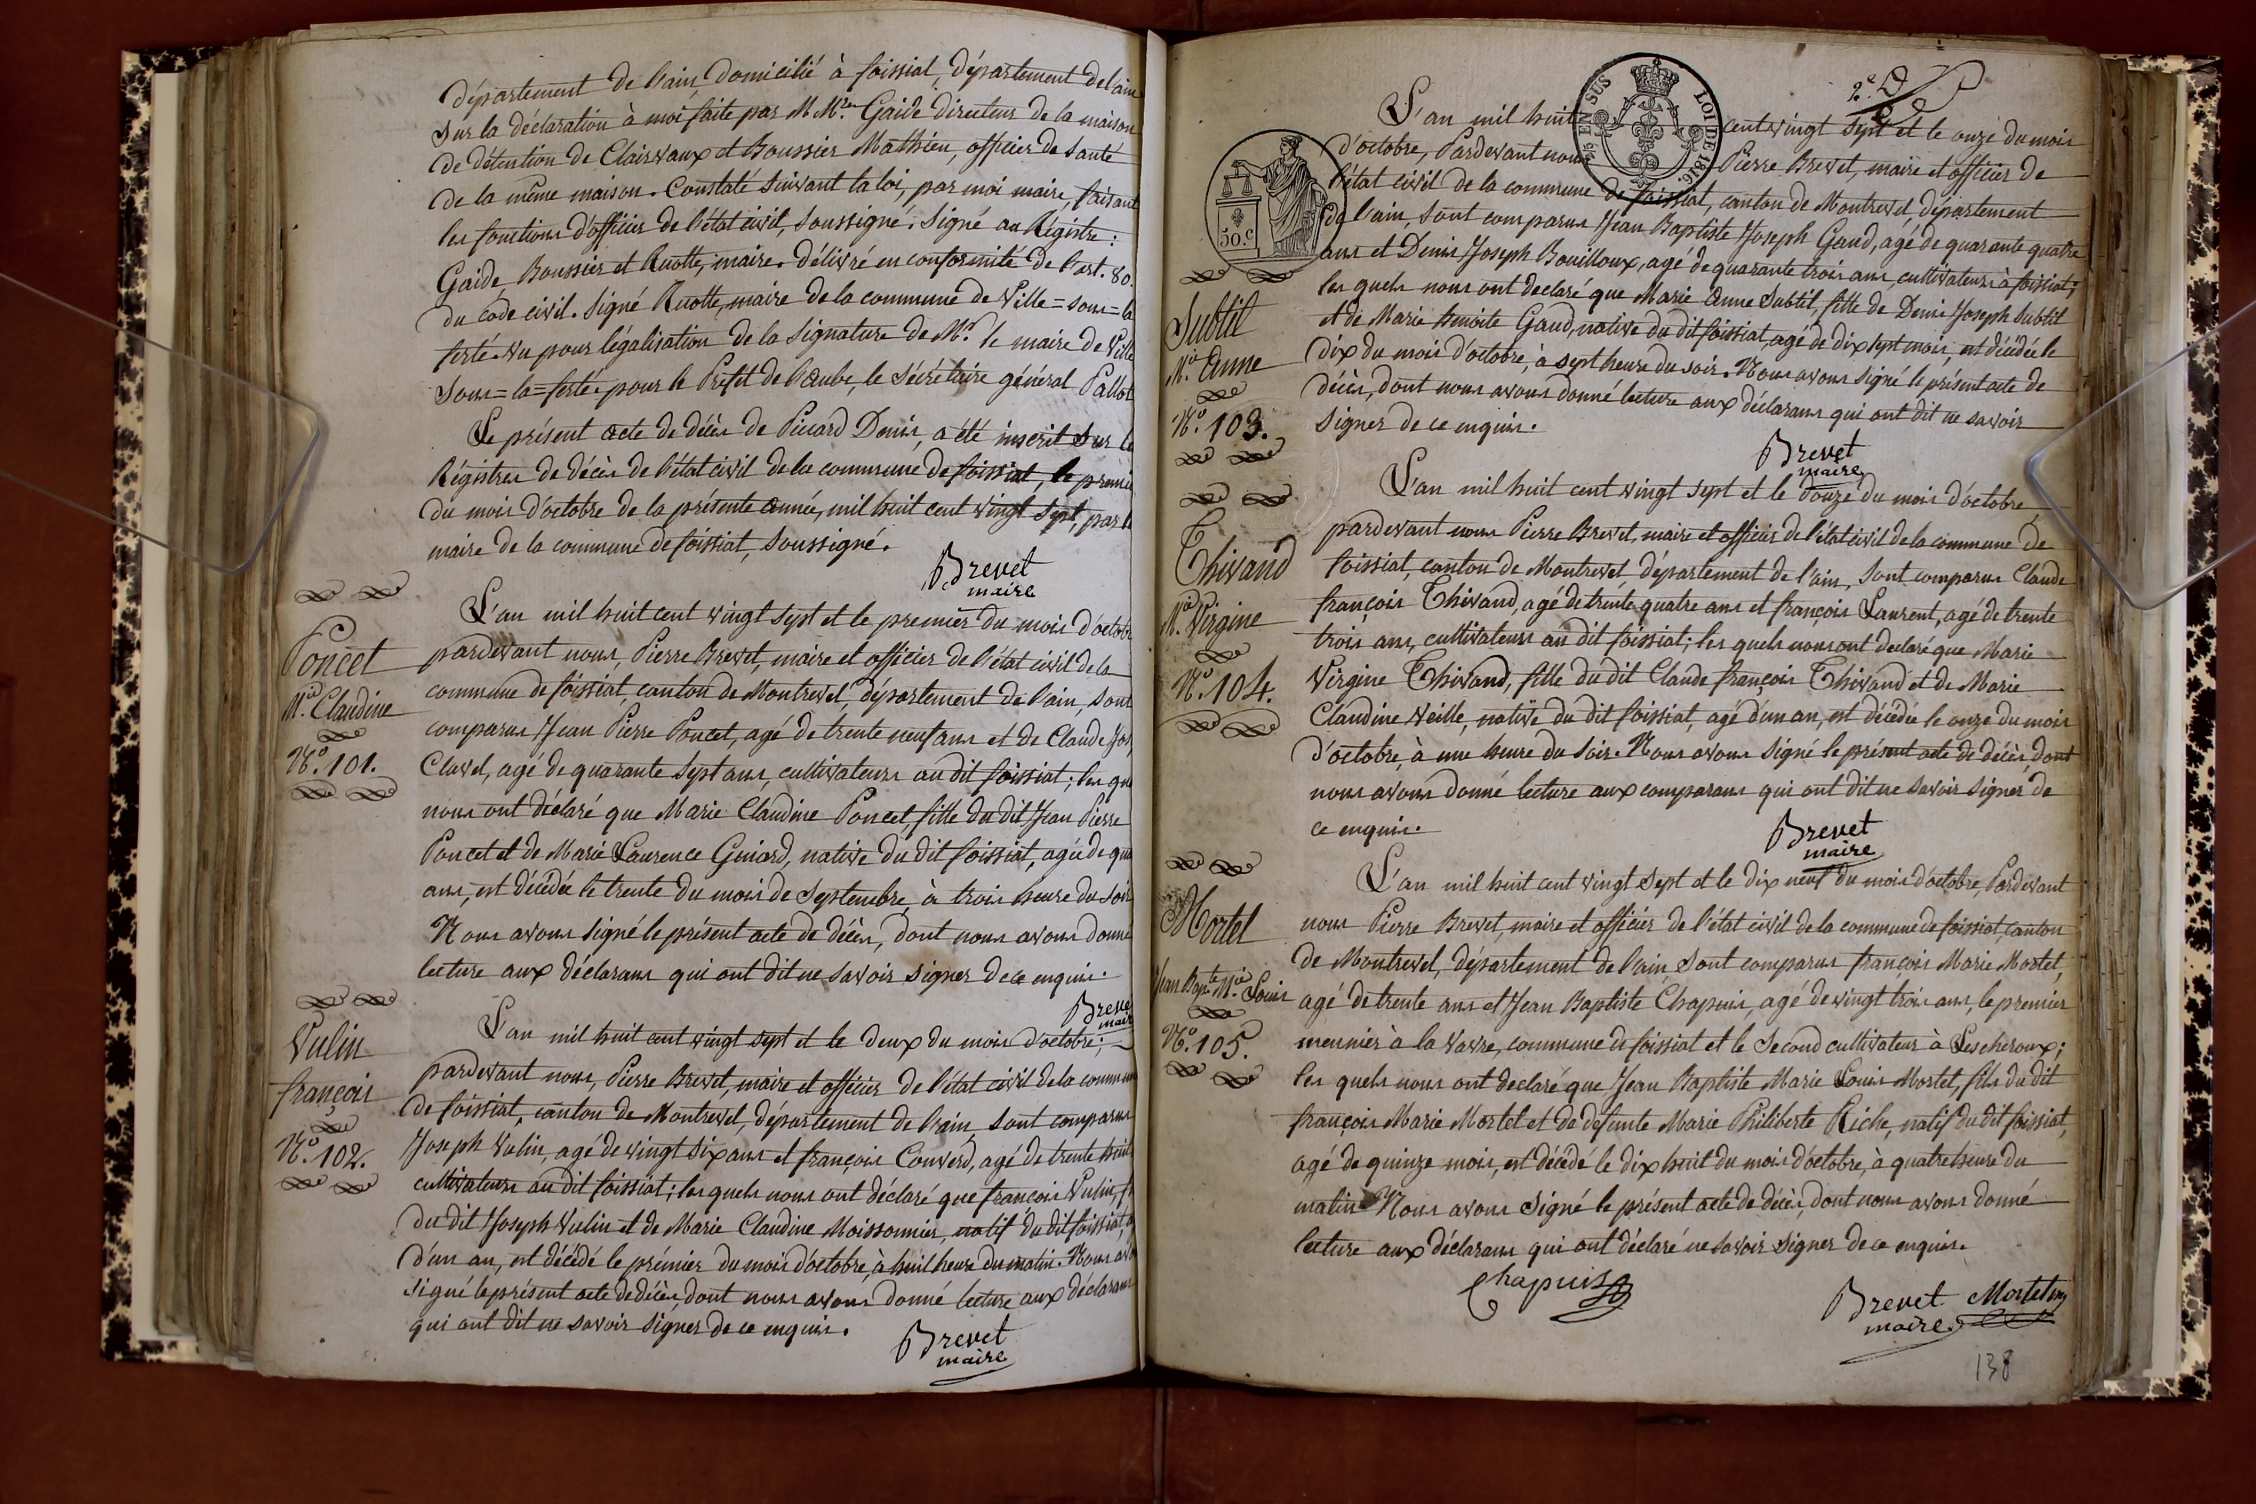 département de l'ain, domicilié à foissiat, département de l'ain
Sur la déclaration à moi faite par M.Mrs. Gaide directeur de la maison
de détention de Clairvaux et Boussier Mathieu, officier de Santé
de la même maison. Constaté suivant la loi, par moi maire, faisant
les fonctions d'officier de l'état civil, soussigné. Signé au Régistre :
Gaide, Boussier et Ruotte, maire. délivré en conformité de l'art. 80.
du code civil. Signé Ruotte, maire de la commune de Ville=sous=la
ferté. Vu pour légalisation de la signature de Mr. le maire de Ville
Sous=la=ferté. pour le Préfet de l'aube, le Sécrétaire général Pallot
Le présent acte de décès de Picard Denis, a été inscrit Sur le
Régistres de décès de l'état civil de la commune de foissiat, le premier
du mois d'octobre de la présente année, mil huit cent vingt sept, par le
maire de la commune de foissiat, soussigné.
Brevet
maire
Poncet
Mie. Claudine
No. 101.
L'an mil huit cent vingt sept et le premier du mois d'octobre
pardevant nous, Pierre Brevet, maire et officier de l'état civil de la
commune de foissiat, canton de Montrevel, département de l'ain, sont
comparus Jean Pierre Poncet, agé de trente neuf ans et de Claude Jos,
Clavel, agé de quarante sept ans, cultivateurs au dit foissiat ; les que
nous ont déclaré que Marie Claudine Poncet, fille du dit Jean Pierre
Poncet et de Marie Laurence Guiard, native du dit foissiat, agée de qua
ans, est décédée le trente du mois de Septembre, à trois heure du soir
Nous avons signé le présent acte de décès, dont nous avons donné
lecture aux déclarans qui ont dit ne savoir signer de ce enquis.
Brevet
maire
Vulin
françois
No. 102.
L'an mil huit cent vingt sept et le deux du mois d'octobre ;
pardevant nous, Pierre Brevet, maire et officier de l'état civil de la commune
de foissiat, canton de Montrevel, département de l'ain, sont comparus
Joseph Vulin, agé de vingt six ans et françois Converd, agé de trente huit
cultivateurs au dit foissiat ; les quels nous ont déclaré que françois Vulin, fi
du dit Joseph Vulin et de Marie Claudine Moissonnier, natif du dit foissiat, a
d'un an, est décédé le prémier du mois d'octobre, à huit heure du matin. Nous avo
signé le présent acte de décès, dont nous avons donné lecture aux déclarans
qui ont dit ne savoir signer de ce enquis.
Brevet
maire
2e. D
5/5 EN SUS LOI DE 1816.
50.c
Subtil
Mie. Anne
No. 103.
L'an mil huit cent vingt sept et le onze du mois
d'octobre, Pardevant nous Pierre Brevet, maire et officier de
l'état civil de la commune de foissiat, canton de Montrevel, département
de l'ain, sont comparus Jean Baptiste Joseph Gaud, agé de quarante quatre
ans et Denis Joseph Bouilloux, agé de quarante trois ans, cultivateurs à foissiat ;
les quels nous ont declaré que Marie Anne Subtil, fille de Denis Joseph Subtil
et de Marie benoite Gaud, native du dit foissiat, agé de dix sept mois, est décédée le
dix du mois d'octobre, à sept heure du soir. Nous avons signé le présent acte de
décès, dont nous avons donné lecture aux déclarans qui ont dit ne savoir
signer de ce enquis.
Brevet
maire
Thivand
Mie. Virgine
No. 104.
L'an mil huit cent vingt sept et le douze du mois d'octobre
pardevant nous Pierre Brevet, maire et officier de l'état civil de la commune de
foissiat, canton de Montrevel, département de l'ain, sont comparus Claude
françois Thivand, agé de trente quatre ans et françois Laurent, agé de trente
trois ans, cultivateurs au dit foissiat ; les quels nous ont declaré que Marie
Virgine Thivand, fille du dit Claude françois Thivand et de Marie
Claudine Veille, native du dit foissiat, agé d'un an, est décédée le onze du mois
d'octobre, à une heure du soir. Nous avons signé le présent acte de décès, dont
nous avons donné lecture aux comparans qui ont dit ne savoir signer de
ce enquis.
Brevet
maire
Mortel
Jean Bapte. Mie. Louis
No. 105.
L'an mil huit cent vingt sept et le dix neuf du mois d'octobre, Pardevant
nous Pierre Brevet, maire et officier de l'état civil de la commune de foissiat, canton
de Montrevel, département de l'ain, sont comparus françois Marie Mortel,
agé de trente ans et Jean Baptiste Chapuis, agé de vingt trois ans, le premier
meunier à la Vavre, commune de foissiat et le Second cultivateur à Lescheroux ;
les quels nous ont declaré que Jean Baptiste Marie Louis Mortel, fils du dit
françois Marie Mortel et de defunte Marie Philiberte Riche, natif du dit foissiat,
agé de quinze mois, est décédé le dix huit du mois d'octobre, à quatre heure du
matin. Nous avons signé le présent acte de décès, dont nous avons donné
lecture aux déclarans qui ont déclaré ne savoir signer de ce enquis.
Chapuis
Brevet Mortel
maire.
138